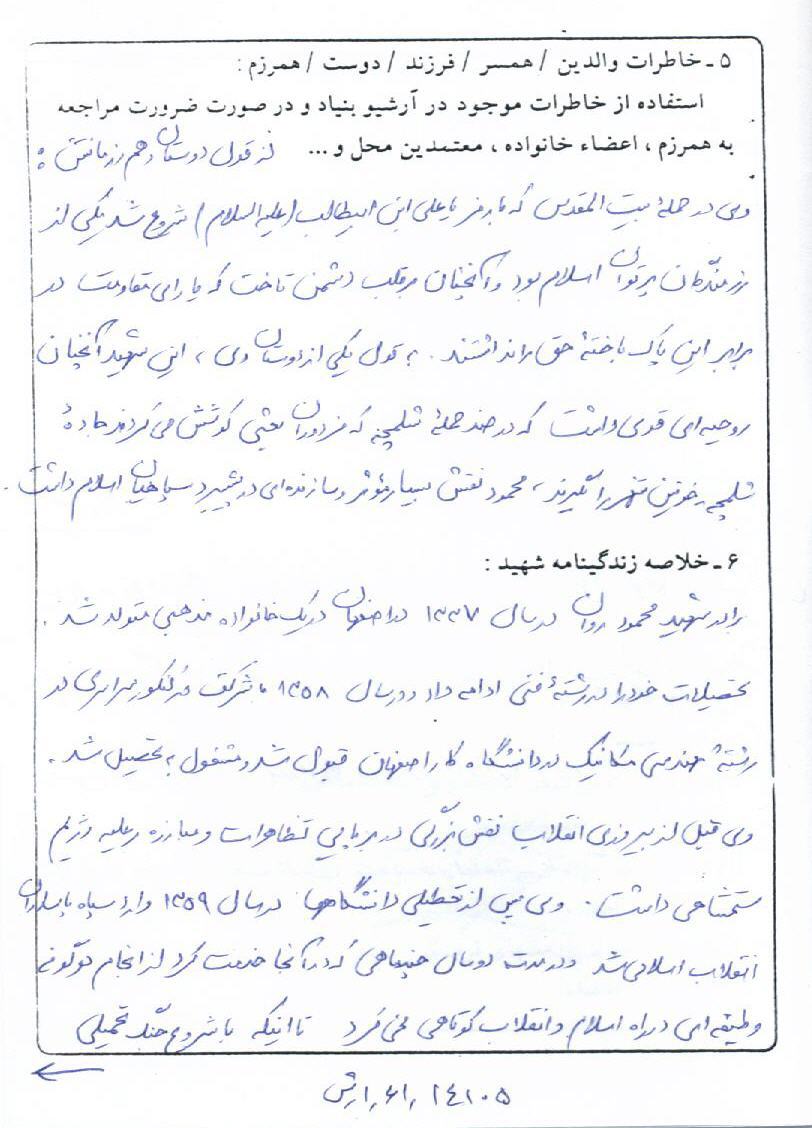 ۵ ـ خاطرات والدین / همسر / فرزند / دوست / همرزم :
استفاده از خاطرات موجود در آرشیو بنیاد و در صورت ضرورت مراجعه
به همرزم ، اعضاء خانواده ، معتمدین محل و ... از قول دوستان و هم رزمانش :
وی در حملهٔ بیت المقدس که با رمز یا علی ابن ابیطالب (علیه السلام) شروع شد یکی از
رزمندگان پرتوان اسلام بود و آنچنان بر قلب دشمن تاخت که یارای مقاومت در
برابر این پاک باختهٔ حق را نداشتند . به قول یکی از دوستان وی ، این شهید آنچنان
روحیه ای قوی داشت که در ضد حملهٔ شلمچه که مزدوران بعثی کوشش می کردند جادهٔ
شلمچه ـ خونین شهر را بگیرند ، محمود نقش بسیار مؤثر و سازنده ای در پیشبرد سپاهیان اسلام داشت .
۶ ـ خلاصه زندگینامه شهید :
برادر شهید محمود روان در سال ۱۳۳۷ در اصفهان در یک خانواده مذهبی متولد شد .
تحصیلات خود را در رشتهٔ فنی ادامه داد و در سال ۱۳۵۸ با شرکت در کنکور سراسری در
رشتهٔ مهندسی مکانیک در دانشگاه کار اصفهان قبول شد و مشغول به تحصیل شد .
وی قبل از پیروزی انقلاب نقش بزرگی در برپایی تظاهرات و مبارزه بر علیه رژیم
ستمشاهی داشت . وی پس از تعطیلی دانشگاهها در سال ۱۳۵۹ وارد سپاه پاسداران
انقلاب اسلامی شد و در مدت دو سال و چند ماهی که در آنجا خدمت کرد از انجام هرگونه
وظیفه ای در راه اسلام و انقلاب کوتاهی نمی کرد تا اینکه با شروع جنگ تحمیلی
۱۴۱۰۵